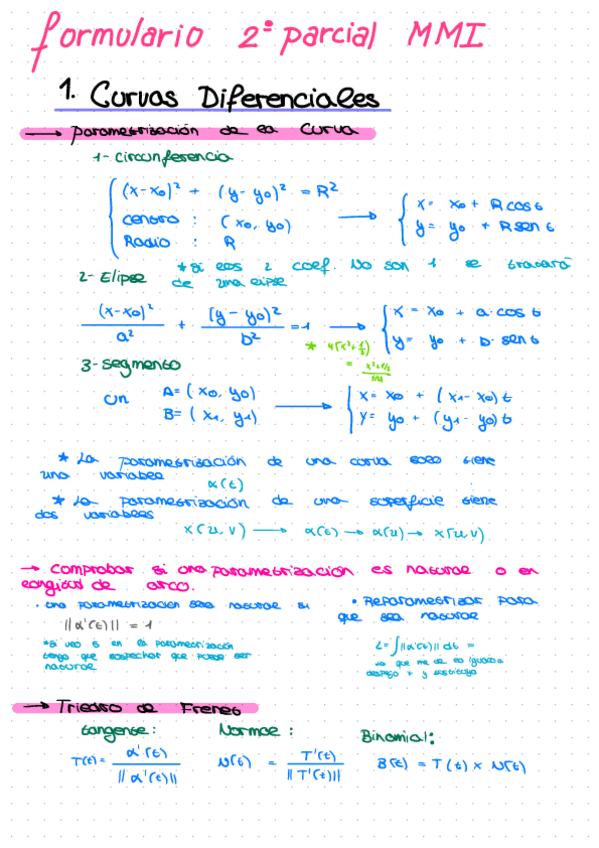 formulario 2º parcial MMI
1. Curvas Diferenciales
→ parametrización de la curva
1- circunferencia
(x-x0)² + (y-y0)² = R²
centro : (x0, y0)
Radio : R
→
x = x0 + R cos t
y = y0 + R sen t
2- Elipse
* si los 2 coef. No son 1 se tratará de una elipse
(x-x0)²/a² + (y-y0)²/b² = 1 →
x = x0 + a·cos t
y = y0 + b·sen t
3- segmento
un A = (x0, y0)
B = (x1, y1)
→
x = x0 + (x1-x0)t
y = y0 + (y1-y0)t
* La parametrización de una curva solo tiene
una variable α(t)
* La parametrización de una superficie tiene
dos variables
x(u,v) → α(t) → α(u) → x(u,v)
→ comprobar si una parametrización es natural o en
longitud de arco.
· una parametrización será natural si
||α'(t)|| = 1
*si veo s en la parametrización
tengo que sospechar que puede ser
natural
• Reparametrizar para
que sea natural
L = ∫||α'(t)|| dt =
lo que me de lo igualo a
despejo t y sustituyo
→ Triedro de Frenet
tangente: Normal: Binomial:
T(t) = α'(t)/||α'(t)|| N(t) = T'(t)/||T'(t)|| B(t) = T(t) × N(t)